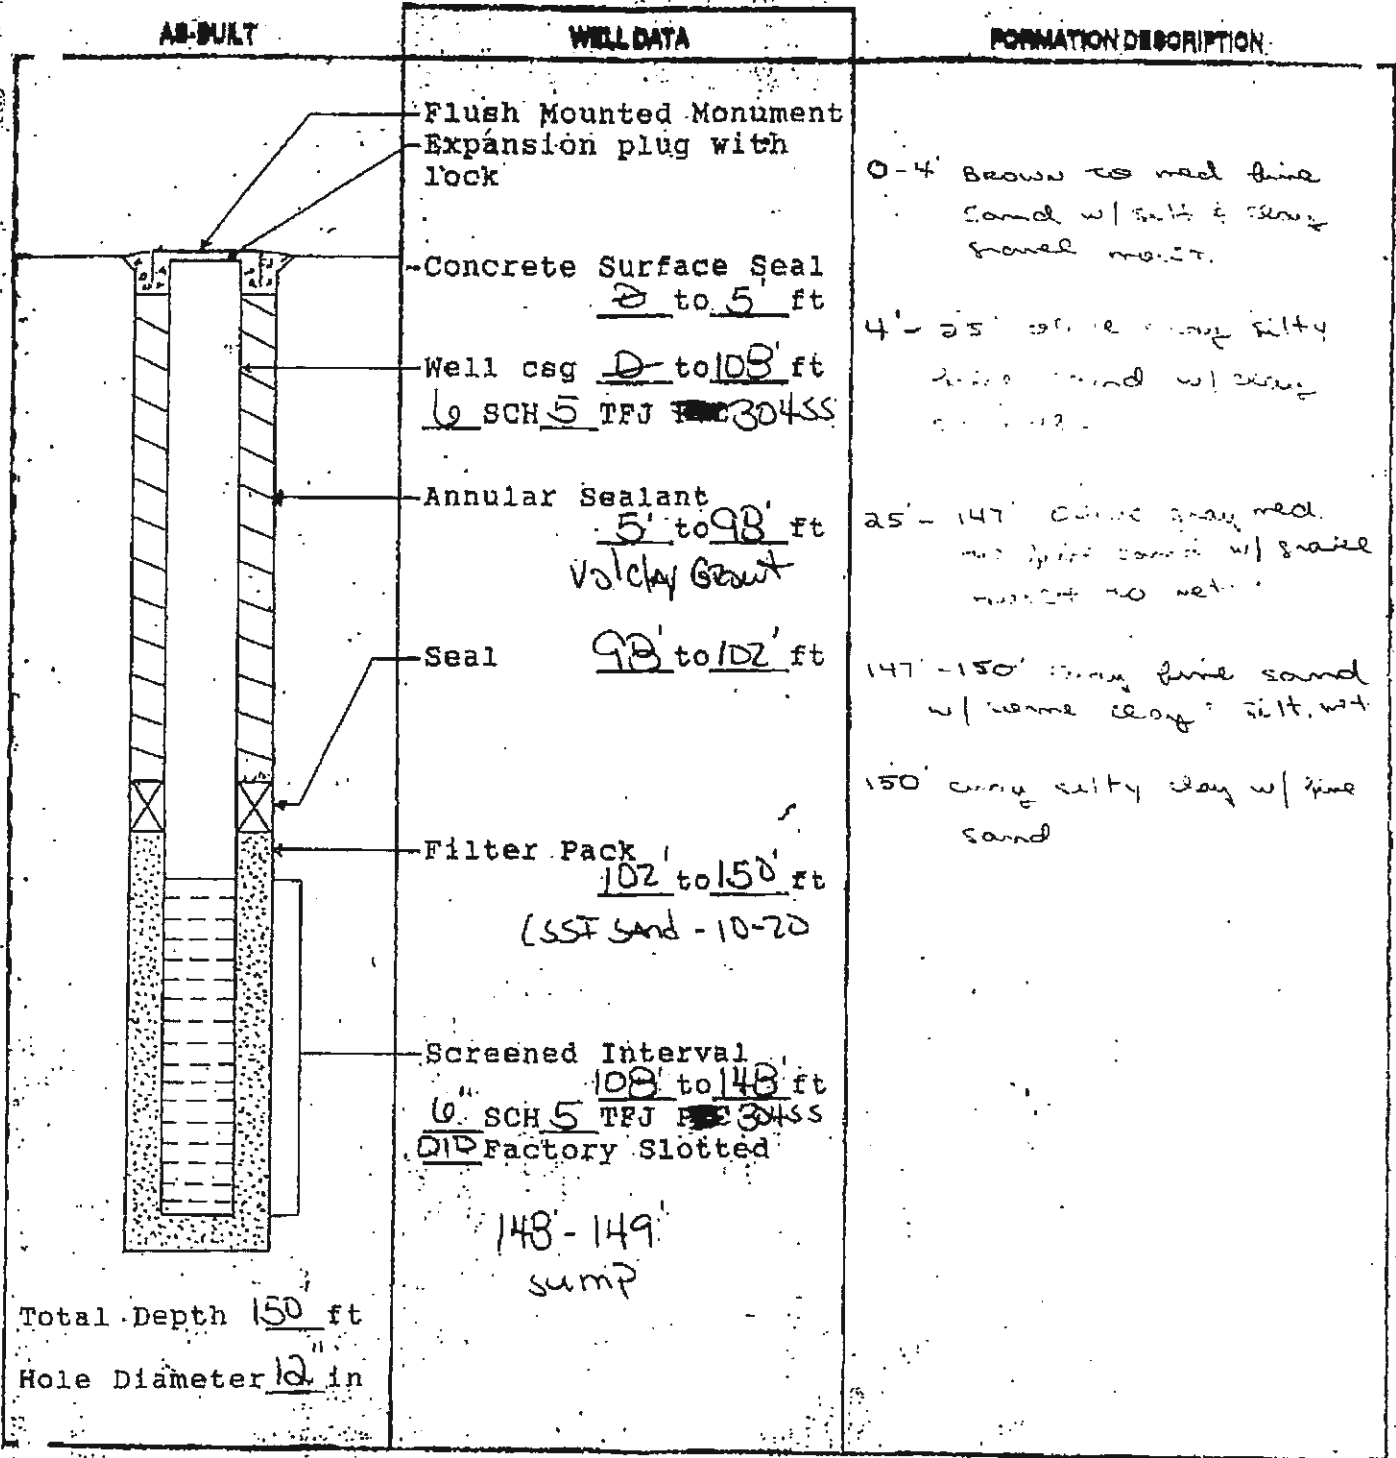 AS-BUILT
WELL DATA
FORMATION DESCRIPTION
Flush Mounted Monument
Expansion plug with
lock
Concrete Surface Seal
0 to 5' ft
Well csg 0 to 108' ft
6 SCH 5 TFJ 304SS
Annular Sealant
5' to 98' ft
Volclay Grout
Seal 98' to 102' ft
Filter Pack
102' to 150' ft
CSSI Sand - 10-20
Screened Interval
108' to 148' ft
6" SCH 5 TFJ 304SS
010 Factory Slotted
148' - 149'
sump
Total Depth 150' ft
Hole Diameter 12" in
0-4' BROWN to med fine
sand w/ silt &
gravel moist.
4'- 25' silty
sand w/
25' - 147' gray med.
sand w/ gravel
moist to wet
147' - 150' gray fine sand
w/ some clay silt, wet
150' gray silty clay w/ fine
sand